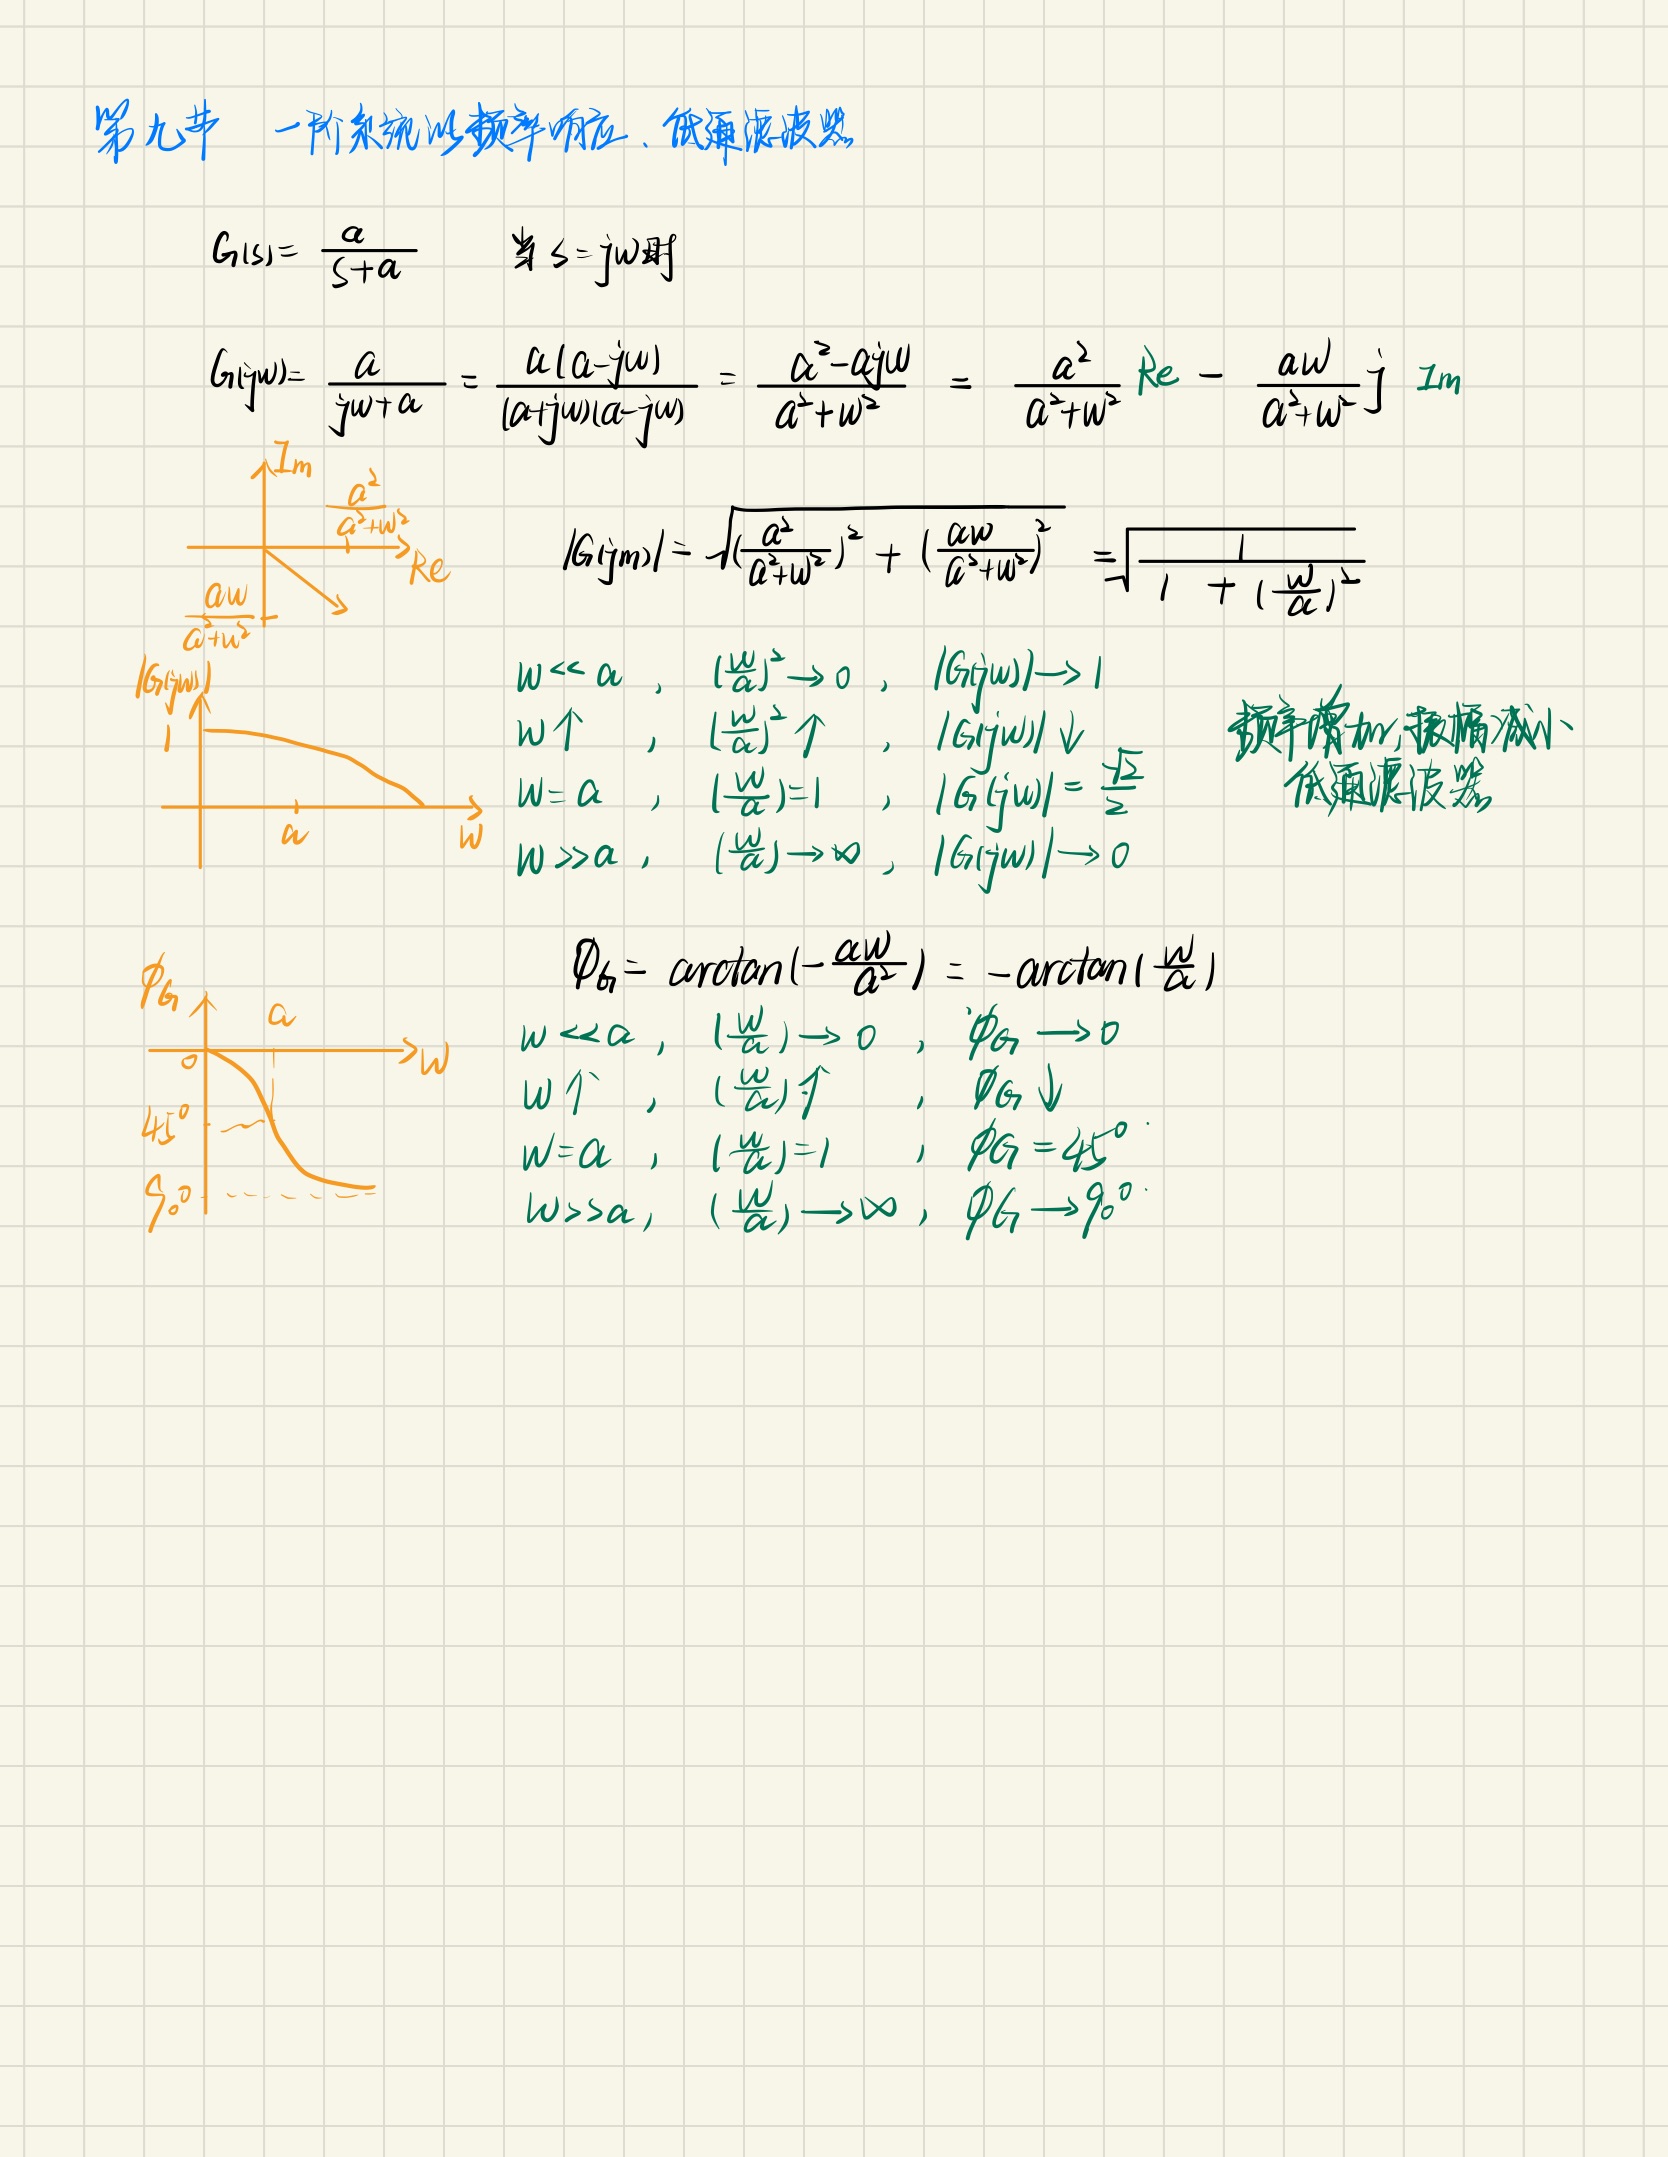 第九节 一阶系统的频率响应、低通滤波器
G(s) = a/(s+a) 当 s=jw时
G(jw) = a/(jw+a) = a(a-jw)/((a+jw)(a-jw)) = (a²-ajw)/(a²+w²) = a²/(a²+w²) Re - aw/(a²+w²) j Im
Im
a²/(a²+w²)
Re
aw/(a²+w²)
|G(jm)| = √((a²/(a²+w²))² + (aw/(a²+w²))²) = √(1/(1+(w/a)²))
|G(jw)|
1
a
w
w<<a , (w/a)²→0 , |G(jw)|→1
w↑ , (w/a)²↑ , |G(jw)|↓
w=a , (w/a)=1 , |G(jw)|=√2/2
w>>a , (w/a)→∞ , |G(jw)|→0
频率增加,振幅减小
低通滤波器
ϕG = arctan(-aw/a²) = -arctan(w/a)
ϕG
a
0
w
45°
90°
w<<a , (w/a)→0 , ϕG→0
w↑ , (w/a)↑ , ϕG↓
w=a , (w/a)=1 , ϕG=45°
w>>a , (w/a)→∞ , ϕG→90°